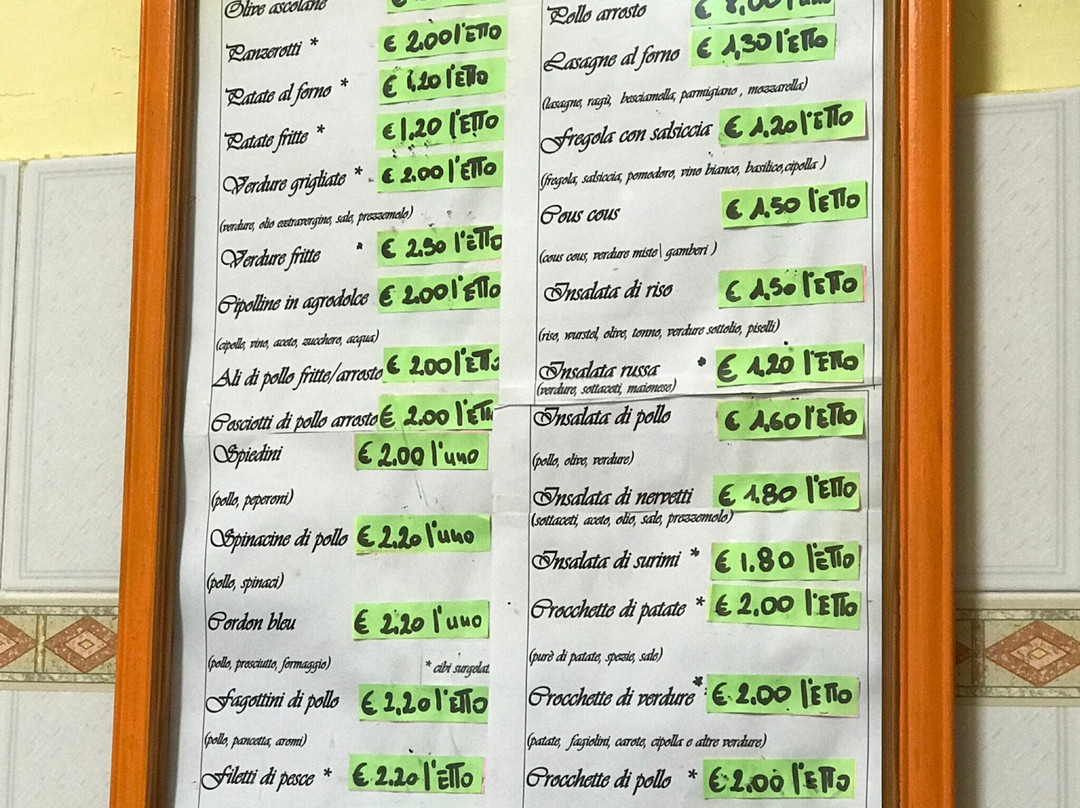 Olive ascolane €
Panzerotti * € 2.00 l'ETTO
Patate al forno * € 1,20 l'ETTO
Patate fritte * € 1.20 l'ETTO
Verdure grigliate * € 2.00 l'ETTO
(verdure, olio extravergine, sale, prezzemolo)
Verdure fritte * € 2.50 l'ETTO
Cipolline in agrodolce € 2.00 l'ETTO
(cipolle, vino, aceto, zucchero, acqua)
Ali di pollo fritte/arrosto € 2.00 l'ETTO
Cosciotti di pollo arrosto € 2.00 l'ETTO
Spiedini € 2.00 l'uno
(pollo, peperoni)
Spinacine di pollo € 2.20 l'uno
(pollo, spinaci)
Cordon bleu € 2.20 l'uno
(pollo, presciutto, formaggio)
* cibi surgelat
Fagottini di pollo € 2,20 l'ETTO
(pollo, pancetta, aromi)
Filetti di pesce * € 2.20 l'ETTO
Pollo arrosto € 8,00 l'uno
Lasagne al forno € 1,30 l'ETTO
(lasagne, ragù, besciamella, parmigiano , mozzarella)
Fregola con salsiccia € 1,20 l'ETTO
(fregola, salsiccia, pomodoro, vino bianco, basilico,cipolla )
Cous cous € 1.50 l'ETTO
(cous cous, verdure miste\ gamberi )
Insalata di riso € 1,50 l'ETTO
(riso, wurstel, olive, tonno, verdure sottolio, piselli)
Insalata russa * € 1,20 l'ETTO
(verdure, sottaceti, maionese)
Insalata di pollo € 1,60 l'ETTO
(pollo, olive, verdure)
Insalata di nervetti € 1.80 l'ETTO
(sottaceti, aceto, olio, sale, prezzemolo)
Insalata di surimi * € 1.80 l'ETTO
Crocchette di patate * € 2.00 l'ETTO
(purè di patate, spezie, sale)
Crocchette di verdure * € 2.00 l'ETTO
(patate, fagiolini, carote, cipolla e altre verdure)
Crocchette di pollo * € 2.00 l'ETTO